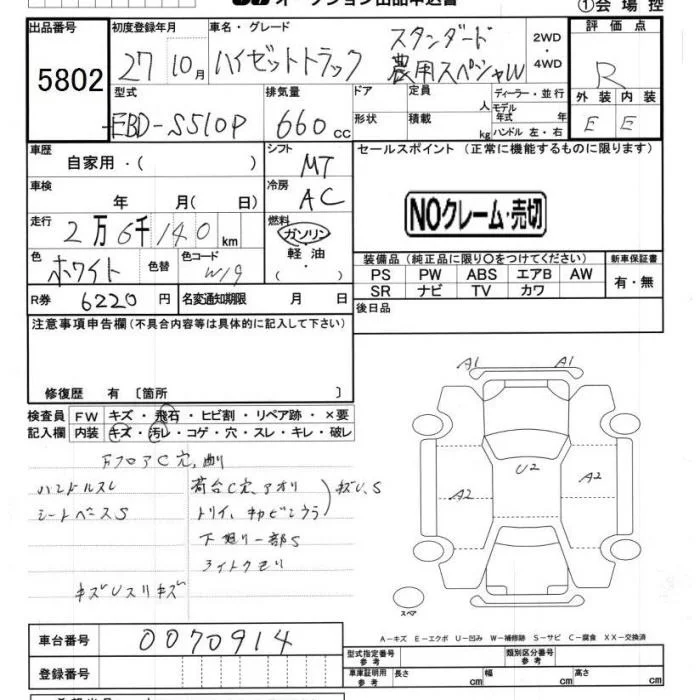 オークション出品申込書
①会場控
出品番号 初度登録年月 車名・グレード 2WD・4WD 評価点
5802 27 10月 ハイゼットトラック スタンダード 農用スペシャル R
型式 排気量 ドア 定員 人 ディーラー・並行 外装 内装
EBD-S510P 660cc 形状 積載 kg モデル年式 年 ハンドル 左・右 E E
車歴 自家用・( ) シフト MT セールスポイント (正常に機能するものに限ります)
車検 年 月( 日) 冷房 AC
NOクレーム・売切
走行 2万6千140km 燃料 ガソリン・軽油・( )
色 ホワイト 色替 色コード W19
装備品(純正品に限り○をつけてください) 新車保証書
PS PW ABS エアB AW 有・無
SR ナビ TV カワ
R券 6220円 名変通知期限 月 日 後日品
注意事項申告欄(不具合内容等は具体的に記入して下さい)
修復歴 有 〔箇所 〕
検査員 FW キズ・飛石・ヒビ割・リペア跡・×要
記入欄 内装 キズ・汚レ・コゲ・穴・スレ・キレ・破レ
A1 A1
U2
A2 A2
FフロアC穴,曲り
ハンドルスレ 荷台C穴,アオリ
シートベースS
下廻り一部S
ライトクモリ
スペア
A-キズ E-エクボ U-凹み W-補修跡 S-サビ C-腐食 XX-交換済
車台番号 0070914
登録番号
型式指定番号 参考 類別区分番号 参考
車庫証明用 参考 長さ cm 幅 cm 高さ cm